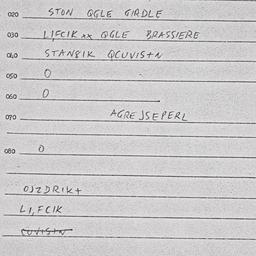 020 STON QGLE GIRDLE
030 LIFCIK xx QGLE BRASSIERE
040 STANGIK QCUVIS+N
050 0
060 0
070 AGREJSEPERL
080 0
OJZDRIK+
LI,FCIK
CUVIS+N